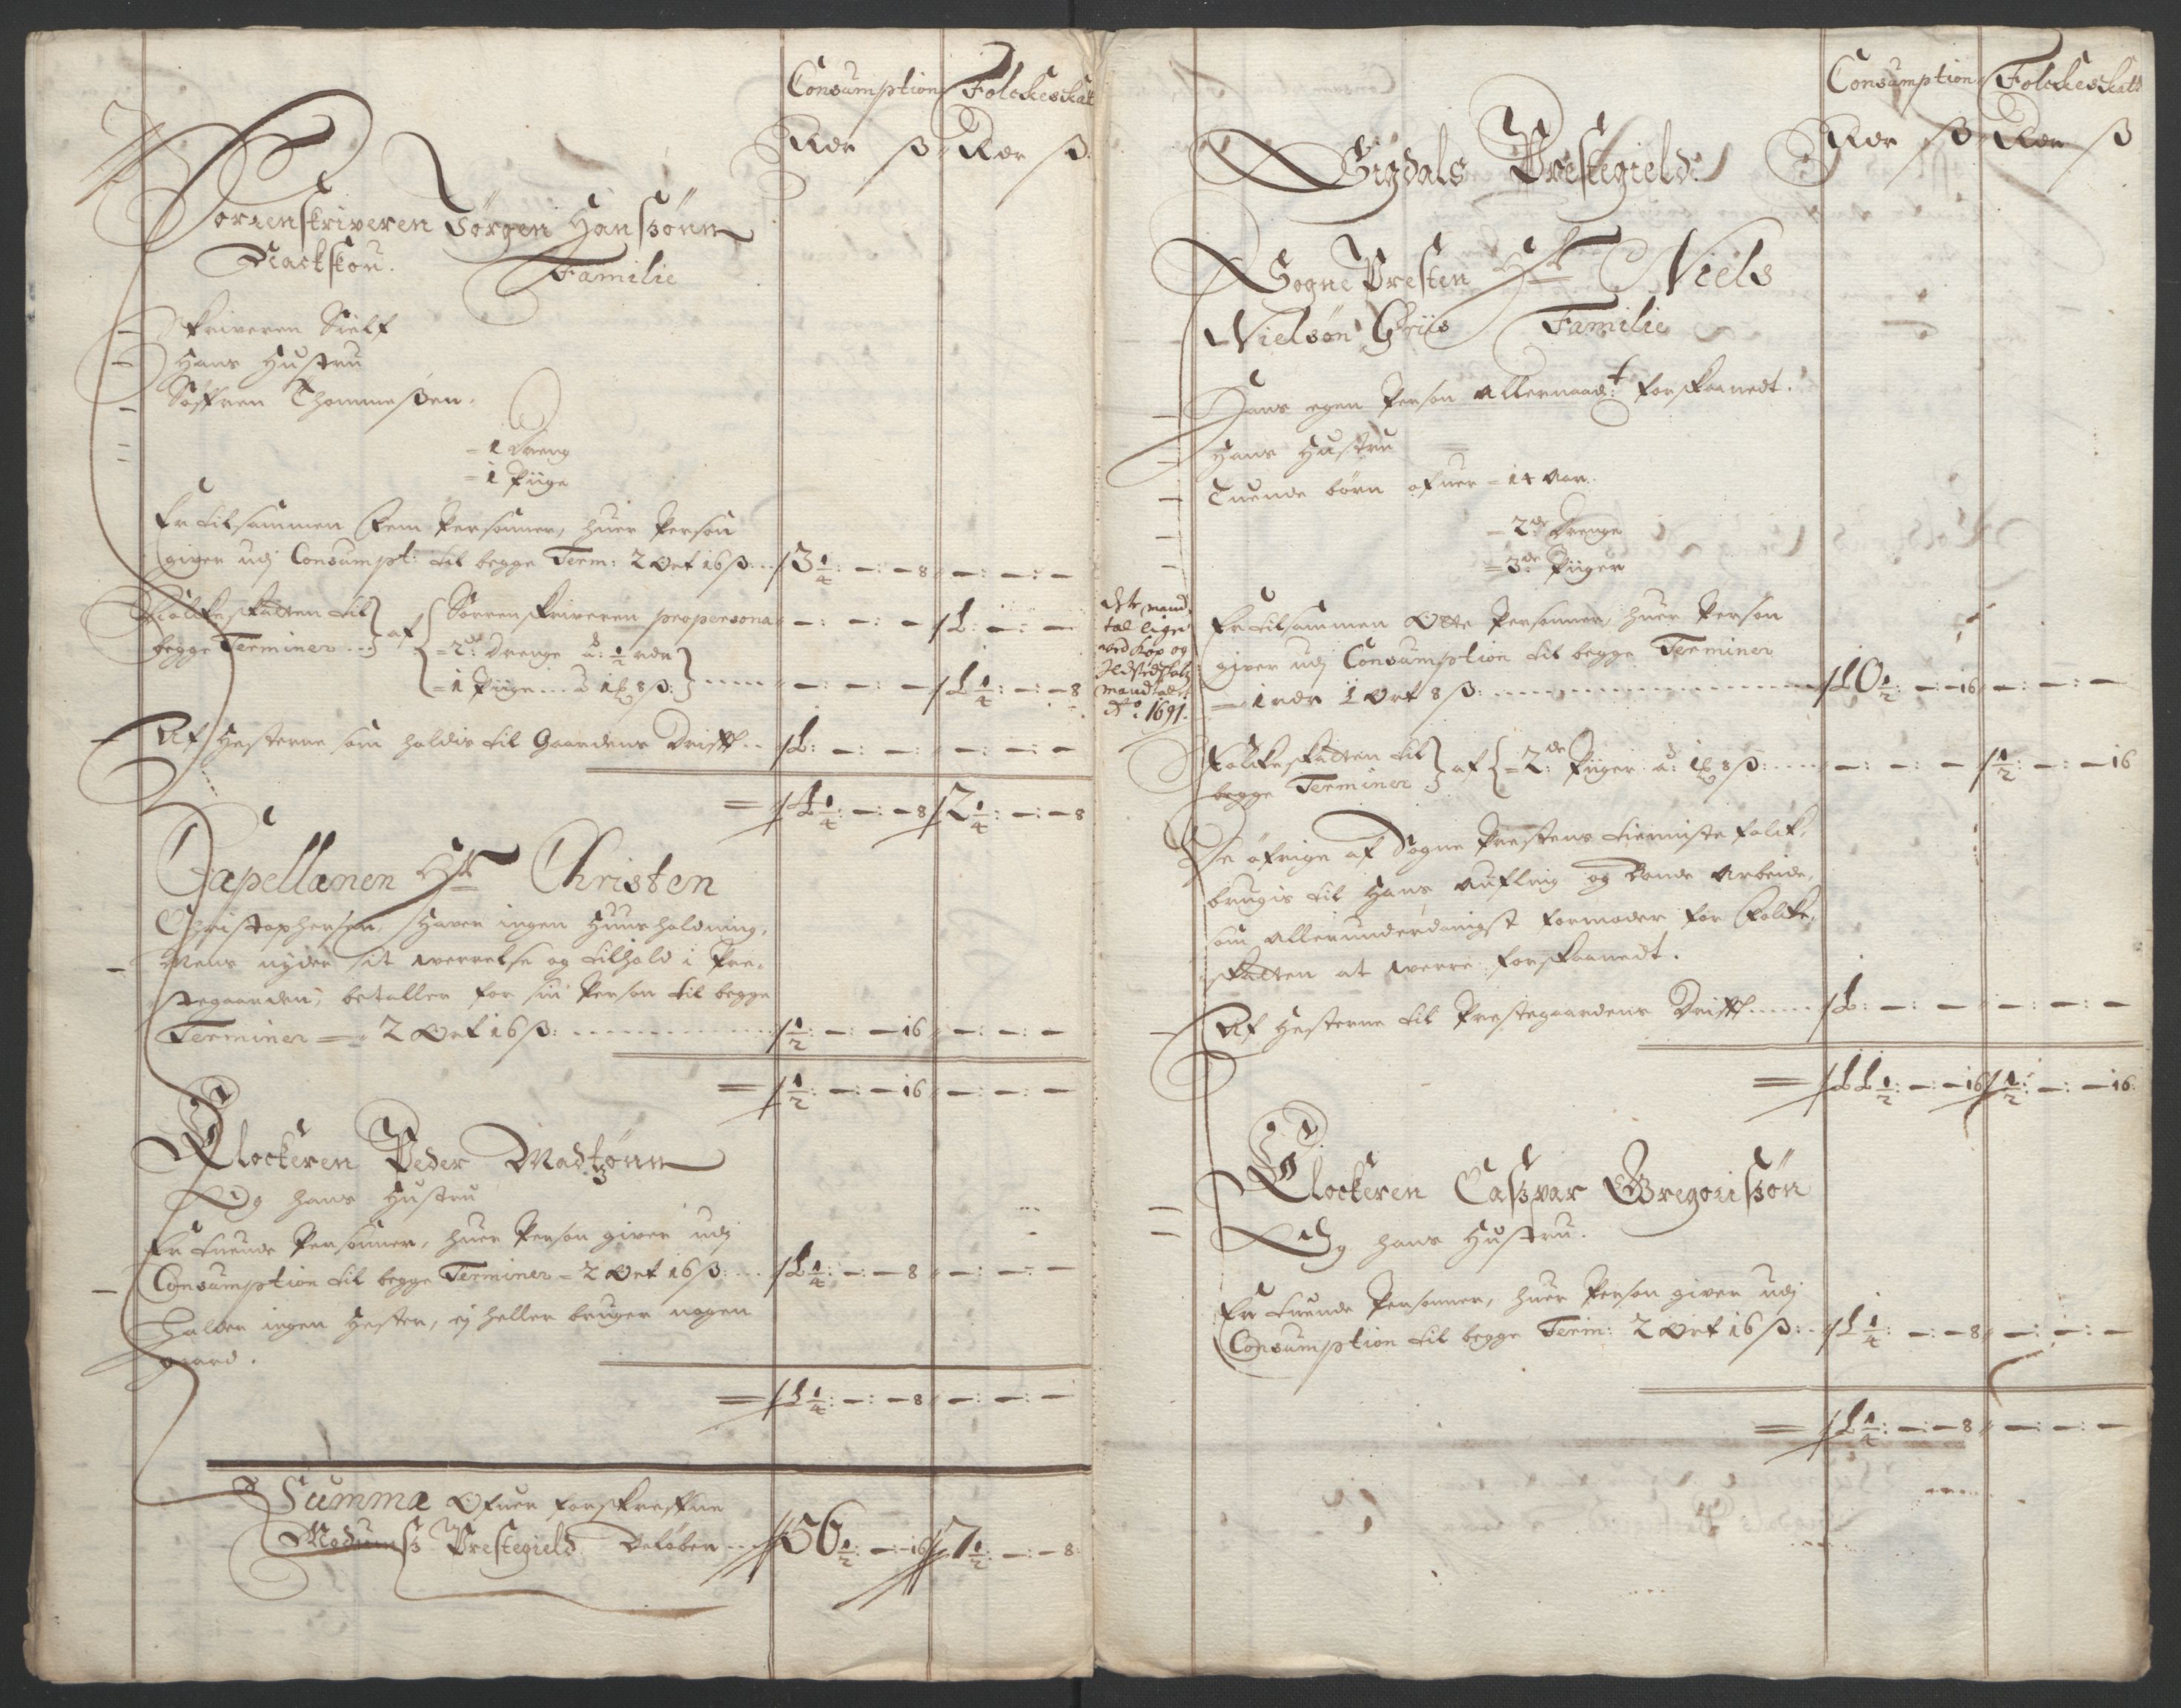 Consumption Folckeskat
Rdr ß Rdr ß.
Sorrenskriveren Jörgen Hanssönn
Nackskou. Familie
Skriveren Sielf
Hans Hustru
Söffren Thommeßen.
= 1 Dreng
= 1 Piige
Er tilsammen Fem Personner, huer Person
giver udj Consumpt: til begge Term: 2 Ort 16 ß: .. 3 1/4: —: — 8 —: —: —
Folckeskatten til
begge Terminer ... af
Sorrenskriveren pro persona —: —: — 1: —: —
= 2de Drenge a: 1/2 rdr
= 1 Piige ... a 1 Ort 8 ß: ..... —: —: — 1 1/4: —: — 8
Af Hesterne som holdis til Gaardens Drifft .. 1: —: —: —: —: —
= 4 1/4: —: — 8 2 1/4: —: — 8
Capellanen Hr Christen
Christophersen, Haver ingen Huusholdning,
Mens nyder sit werrelse og tilhold i Pre-
stegaarden, betaller for sin Person til begge
Terminer = 2 Ort 16 ß: ........ 1/2: —: — 16 —: —: —
= 1/2: —: — 16 —: —: —
Clockeren Peder Madtzönn
Og hans Hustru
Er tuende Personner, huer Person giver udj
Consumption til begge Terminer = 2 Ort 16 ß: ... 1 1/4: —: — 8 —: —: —
Holder ingen Hester, ej heller bruger nogen
gaard.
= 1 1/4: —: — 8 —: —: —
Summa Ofuer forskreffne
Modumß Prestegield Beløber ... 56 1/2: —: 16 7 1/2: —: — 8
Consumption Folckeskatt
Rdr ß Rdr ß
Sigdals Prestegield.
Sogne Presten Hr Niels
Nielsøn Griis Familie
Hans egen Person Allernaad:t forskaanedt.
Hans Hustru
Tuende børn ofuer = 14 Aar.
= 2de Drenge
= 3de Piiger
Dte mand-
tal ligner
ved Kop og
Ildstedskatz
mandtalet
Ao: 1691.
Er tilsammen Otte Personner, huer Person
giver udj Consumption til begge Terminer
= 1 rdr 1 Ort 8 ß: ............ 10 1/2: —: — 16 —: —: —
Folckeskatten til
begge Terminer af = 2de: Piiger a: 1 Ort 8 ß: ..... —: —: — 1/2: —: — 16
De öfrige af Sogne Prestens tienniste folck,
brugis til Hans Aufling og Bonde Arbeide,
som allerunderdanigst formoder for Folcke-
skatten at werre forskaanedt.
Af Hesterne til Prestegaardens Drifft ...... 1: —: — —: —: —
= 11 1/2: —: — 16 1/2: —: — 16
Clockeren Caßpar Gregorissøn
Og hans Hustru.
Er tuende Personner, huer Person giver udj
Consumption til begge Term: 2 Ort 16 ß: .. 1 1/4: —: — 8 —: —: —
= 1 1/4: —: — 8 —: —: —